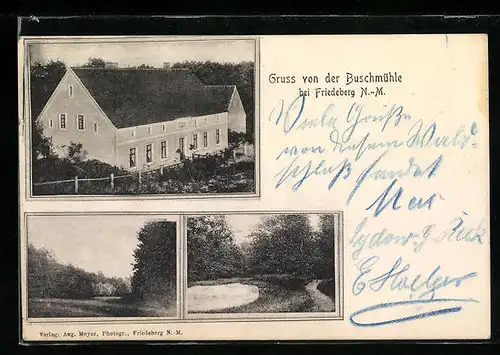 Gruss von der Buschmühle
bei Friedeberg N.-M.
Viele Grüße
von diesem Wald-
schloß sendet
Max
Verlag: Aug. Meyer, Photogr., Friedeberg N.-M.